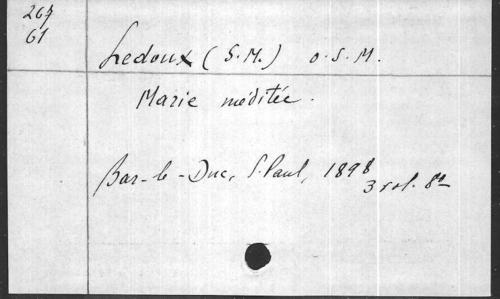 267
61
Ledoux (S.M.) O.S.M.
Marie méditée.
Bar-le-Duc, S. Paul, 1898
3 vol. 8º